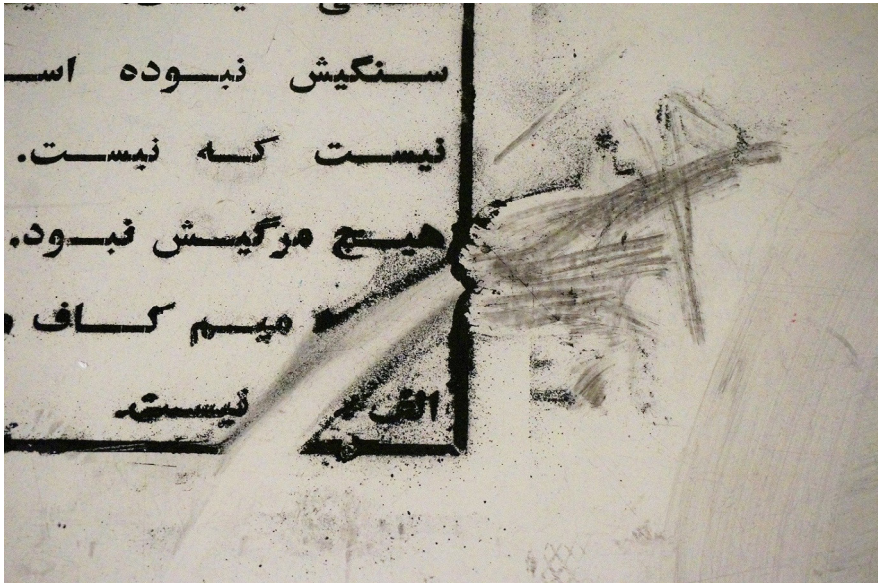 سنگیش نبوده اسـ
نیست که نیست.
هیچ مرگیش نبود.
میم کاف
الف نیست.